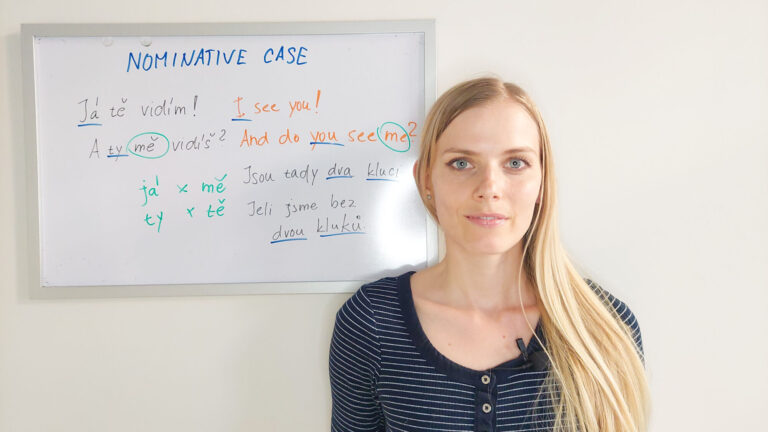 NOMINATIVE CASE
Já tě vidím!
A ty mě vidíš?
já x mě
ty x tě
I see you!
And do you see me?
Jsou tady dva kluci
Jeli jsme bez
dvou kluků.